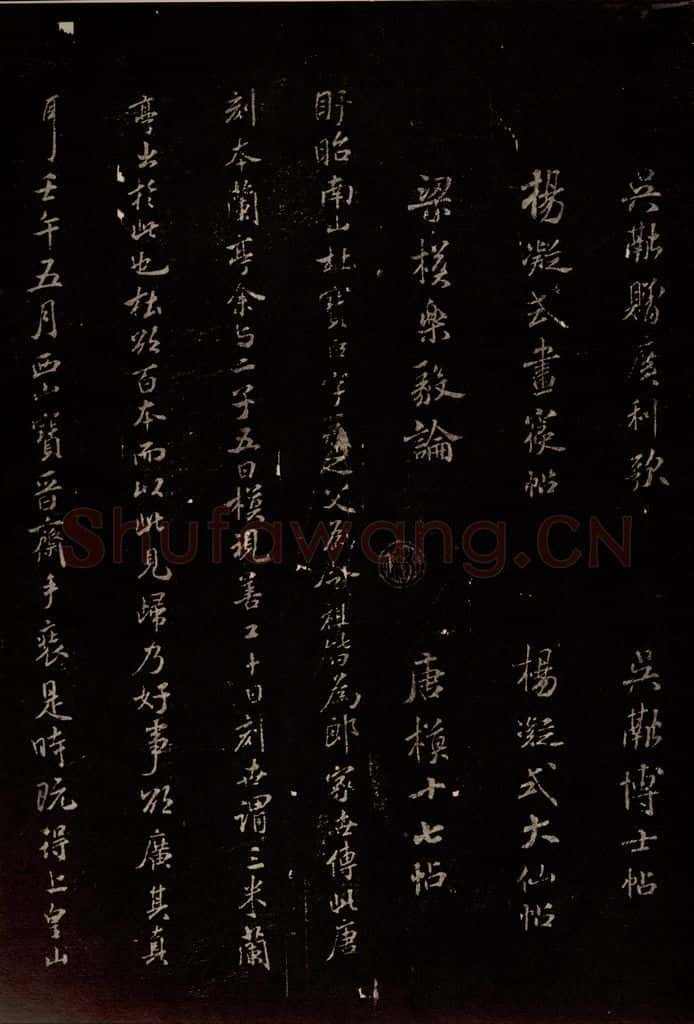 吳融贈廣利歌 吳融博士帖
楊凝式畫寢帖 楊凝式大仙帖
梁模樂毅論 唐模十七帖
盱眙南山杜寶臣字之父爲祖皆爲郎家世傳此唐
刻本蘭亭余与二子五日模現善工十日刻世謂三米蘭
亭出於此也杜欲百本而以此見歸乃好事欲廣其真
耳壬午五月西山寶晉齋手裝是時既得上皇山
Shufawang.CN